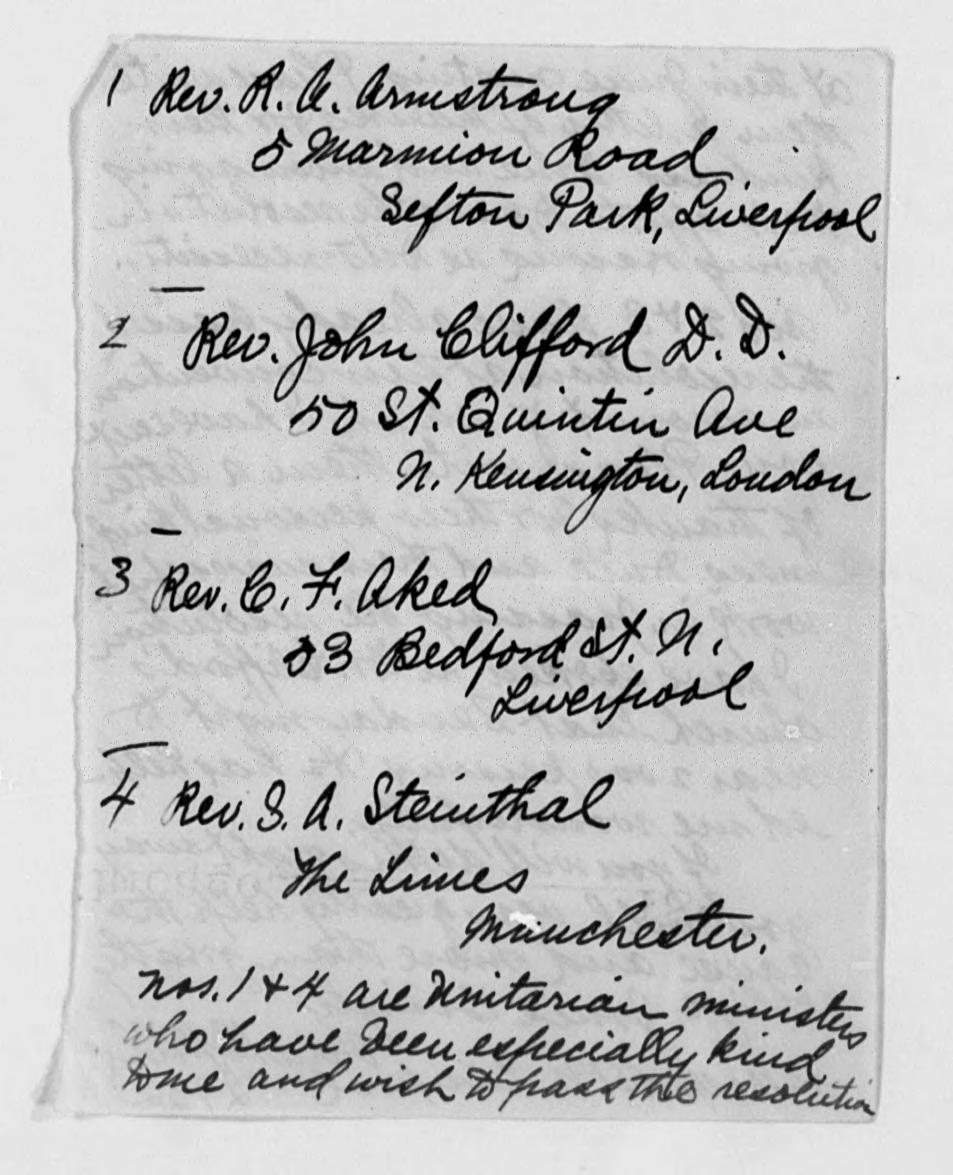 1 Rev. R. A. Armstrong
5 Marmion Road
Sefton Park, Liverpool
2 Rev. John Clifford D. D.
50 St. Quintin Ave
N. Kensington, London
3 Rev. C. F. Aked
53 Bedford St. N.
Liverpool
4 Rev. S. A. Steinthal
The Limes
Manchester.
Nos. 1 & 4 are Unitarian ministers
who have been especially kind
to me and wish to pass the resolution